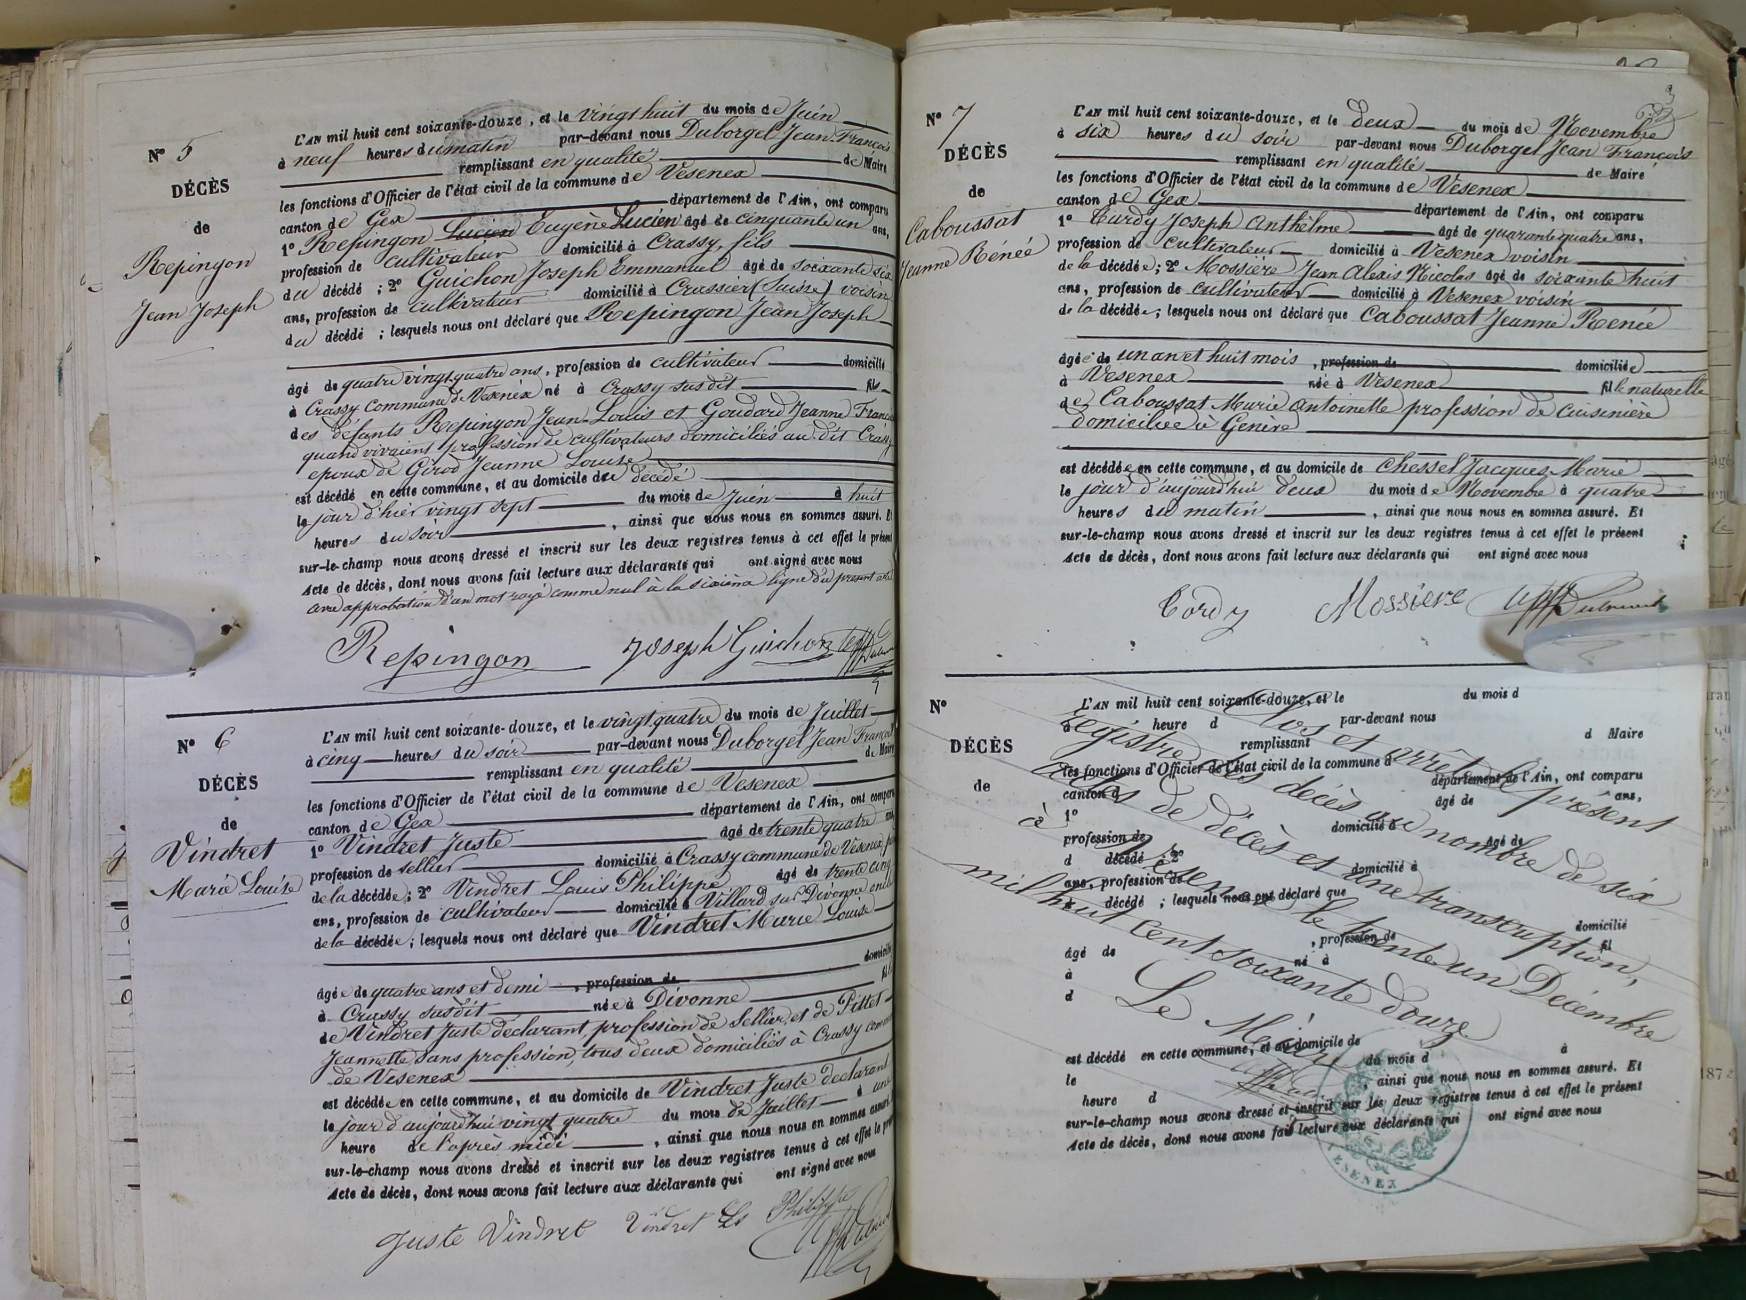 N° 5
DÉCÈS
de
Repingon
Jean Joseph
L'AN mil huit cent soixante-douze, et le vingt huit du mois de Juin
à neuf heures du matin par-devant nous Duborgel Jean François
remplissant en qualité de Maire
les fonctions d'Officier de l'état civil de la commune de Vesenex
canton de Gex département de l'Ain, ont comparu
1° Repingon Lucien Eugène Lucien âgé de cinquante un ans,
profession de cultivateur domicilié à Crassy, fils
du décédé ; 2° Guichon Joseph Emmanuel âgé de soixante six
ans, profession de cultivateur domicilié à Crassier (Suisse) voisin
du décédé ; lesquels nous ont déclaré que Repingon Jean Joseph
âgé de quatre vingt quatre ans, profession de cultivateur domicilié
à Crassy commune de Vesenex né à Crassy susdit fils
des défunts Repingon Jean-Louis et Goudard Jeanne
quand vivaient profession de cultivateurs domiciliés au dit Crassy
époux de Girod Jeanne Louise
est décédé en cette commune, et au domicile du décédé
le jour d'hier vingt sept du mois de Juin à huit
heures du soir, ainsi que nous nous en sommes assuré. Et
sur-le-champ nous avons dressé et inscrit sur les deux registres tenus à cet effet le présent
Acte de décès, dont nous avons fait lecture aux déclarants qui ont signé avec nous
avec approbation d'un mot rayé comme nul à la sixième ligne du présent acte
Repingon Joseph Guichon
N° 6
DÉCÈS
de
Vindret
Marie Louise
L'AN mil huit cent soixante-douze, et le vingt quatre du mois de Juillet
à cinq heures du soir par-devant nous Duborgel Jean François
remplissant en qualité de Maire
les fonctions d'Officier de l'état civil de la commune de Vesenex
canton de Gex département de l'Ain, ont comparu
1° Vindret Juste âgé de trente quatre ans
profession de sellier domicilié à Crassy commune de Vesenex
de la décédée ; 2° Vindret Louis Philippe âgé de trente cinq
ans, profession de cultivateur domicilié à Villard sur Divonne
de la décédée ; lesquels nous ont déclaré que Vindret Marie Louise
âgée de quatre ans et demi, profession de domiciliée
à Crassy susdit née à Divonne
de Vindret Juste déclarant profession de Sellier, et de Pittet
Jeannette sans profession, tous deux domiciliés à Crassy commune
de Vesenex
est décédée en cette commune, et au domicile de Vindret Juste déclarant
le jour d'aujourd'hui vingt quatre du mois de Juillet à une
heure de l'après midi, ainsi que nous nous en sommes assuré
sur-le-champ nous avons dressé et inscrit sur les deux registres tenus à cet effet le
Acte de décès, dont nous avons fait lecture aux déclarants qui ont signé avec nous
Juste Vindret Vindret Ls Philippe
N° 7
DÉCÈS
de
Caboussat
Jeanne Rénée
L'AN mil huit cent soixante-douze, et le deux du mois de Novembre
à six heures du soir par-devant nous Duborgel Jean François
remplissant en qualité de Maire
les fonctions d'Officier de l'état civil de la commune de Vesenex
canton de Gex département de l'Ain, ont comparu
1° Turdy Joseph Anthelme âgé de quarante quatre ans,
profession de cultivateur domicilié à Vesenex voisin
de la décédée ; 2° Mossière Jean Alexis Nicolas âgé de soixante huit
ans, profession de cultivateur domicilié à Vesenex voisin
de la décédée ; lesquels nous ont déclaré que Caboussat Jeanne Renée
âgée de un an et huit mois, profession de domiciliée
à Vesenex née à Vesenex fille naturelle
de Caboussat Marie Antoinette profession de cuisinière
domiciliée à Genève
est décédée en cette commune, et au domicile de Chessel Jacques-Marie
le jour d'aujourd'hui deux du mois de Novembre à quatre
heures du matin, ainsi que nous nous en sommes assuré. Et
sur-le-champ nous avons dressé et inscrit sur les deux registres tenus à cet effet le présent
Acte de décès, dont nous avons fait lecture aux déclarants qui ont signé avec nous
Mossière
N°
DÉCÈS
de
L'AN mil huit cent soixante-douze, et le du mois d
à heure d par-devant nous
remplissant d Maire
les fonctions d'Officier de l'état civil de la commune d
canton d département de l'Ain, ont comparu
1° âgé de ans,
profession de domicilié à
d décédé ; 2° âgé de
ans, profession de domicilié à
d décédé ; lesquels nous ont déclaré que
âgé de, profession de domicilié
à né à fil
d
est décédé en cette commune, et au domicile de
le du mois d à
heure d, ainsi que nous nous en sommes assuré. Et
sur-le-champ nous avons dressé et inscrit sur les deux registres tenus à cet effet le présent
Acte de décès, dont nous avons fait lecture aux déclarants qui ont signé avec nous
Clos et arrêté le présent
registre des décès au nombre de six
actes de décès et une transcription,
à Vesenex le trente un Décembre
mil huit cent soixante douze
Le Maire
VESENEX